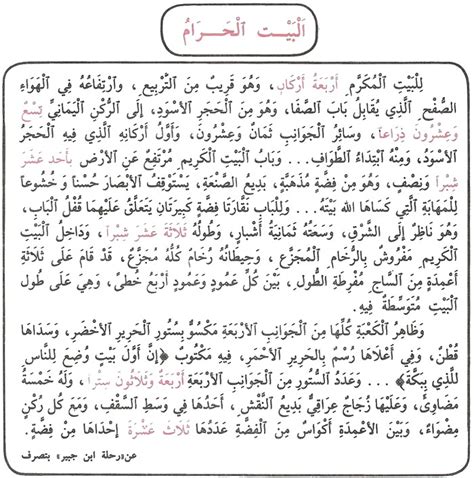 اَلْبَيْتُ اَلْحَرَامُ
لِلْبَيْتِ اَلْمُكَرَّمِ أَرْبَعَةُ أَرْكَانٍ، وَهُوَ قَرِيبٌ مِنَ التَّرْبِيعِ، وَاَرْتِفَاعُهُ فِي اَلْهَوَاءِ
الصَّفْحِ اَلَّذِي يُقَابِلُ بَابَ الصَّفَا، وَهُوَ مِنَ اَلْحَجَرِ اَلْأَسْوَدِ، إِلَى اَلرُّكْنِ اَلْيَمَانِيِّ تِسْعٌ
وَعِشْرُونَ ذِرَاعاً، وَسَائِرُ اَلْجَوَانِبِ ثَمَانٌ وَعِشْرُونَ، وَأَوَّلُ أَرْكَانِهِ اَلَّذِي فِيهِ اَلْحَجَرُ
اَلْأَسْوَدُ، وَمِنْهُ اَبْتِدَاءُ الطَّوَافِ... وَبَابُ اَلْبَيْتِ اَلْكَرِيمِ مُرْتَفِعٌ عَنِ اَلْأَرْضِ بِأَحَدَ عَشَرَ
شِبْراً وَنِصْفٍ، وَهُوَ مِنْ فِضَّةٍ مُذَهَّبَةٍ، بَدِيعُ الصَّنْعَةِ، يَسْتَوْقِفُ اَلْأَبْصَارَ حُسْناً وَ خُشُوعاً
لِلْمَهَابَةِ اَلَّتِي كَسَاهَا اَللهُ بَيْتَهُ... وَلِلْبَابِ نَقَّارَتَا فِضَّةٍ كَبِيرَتَانِ يَتَعَلَّقُ عَلَيْهِمَا قُفْلُ اَلْبَابِ،
وَهُوَ نَاظِرٌ إِلَى الشَّرْقِ، وَسَعَتُهُ ثَمَانِيَةُ أَشْبَارٍ، وَطُولُهُ ثَلَاثَةَ عَشَرَ شِبْراً، وَدَاخِلُ اَلْبَيْتِ
اَلْكَرِيمِ مَفْرُوشٌ بِالرُّخَامِ اَلْمُجَزَّعِ، وَحِيطَانُهُ رُخَامٌ كُلُّهُ مُجَزَّعٌ، قَدْ قَامَ عَلَى ثَلَاثَةِ
أَعْمِدَةٍ مِنَ السَّاجِ مُفْرِطَةِ الطُّولِ، بَيْنَ كُلِّ عَمُودٍ وَعَمُودٍ أَرْبَعُ خُطىً، وَهِيَ عَلَى طُولِ
اَلْبَيْتِ مُتَوَسِّطَةٌ فِيهِ.
وَظَاهِرُ اَلْكَعْبَةِ كُلُّهَا مِنَ اَلْجَوَانِبِ اَلْأَرْبَعَةِ مَكْسُوٌّ بِسُتُورٍ مِنَ اَلْحَرِيرِ اَلْأَخْضَرِ، وَسَدَاهَا
قُطْنٌ، وَفِي أَعْلَاهَا رُسْمٌ بِالْحَرِيرِ اَلْأَحْمَرِ، فِيهِ مَكْتُوبٌ ﴿إِنَّ أَوَّلَ بَيْتٍ وُضِعَ لِلنَّاسِ
لَلَّذِي بِبَكَّةَ﴾... وَعَدَدُ السُّتُورِ مِنَ اَلْجَوَانِبِ اَلْأَرْبَعَةِ أَرْبَعَةٌ وَثَلَاثُونَ سِتْراً، وَلَهُ خَمْسَةُ
مَضَاوِئَ، وَعَلَيْهَا زُجَاجٌ عِرَاقِيٌّ بَدِيعُ النَّقْشِ، أَحَدُهَا فِي وَسَطِ السَّقْفِ، وَمَعَ كُلِّ رُكْنٍ
مِضْوَاءٌ، وَبَيْنَ اَلْأَعْمِدَةِ أَكْوَاسٌ مِنَ اَلْفِضَّةِ عَدَدُهَا ثَلَاثَ عَشْرَةَ إِحْدَاهَا مِنْ فِضَّةٍ.
عن «رحلة ابن جبير» بتصرف